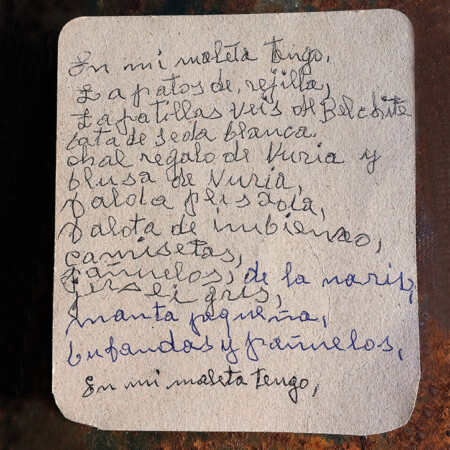 En mi maleta tengo,
Zapatos de rejilla,
Zapatillas veis de Belchite
bata de seda blanca.
chal regalo de Nuria y
blusa de Nuria,
falda plisada,
falda de imbienno,
camisetas,
pañuelos, de la nariz,
jersei gris,
manta pequeña,
bufandas y pañuelos,
En mi maleta tengo,